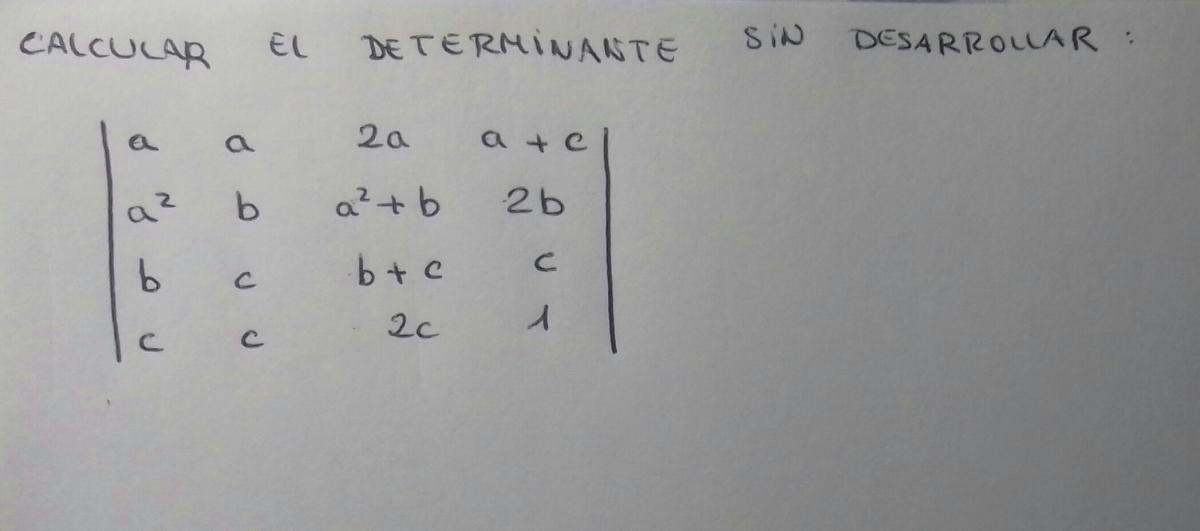 CALCULAR EL DETERMINANTE SIN DESARROLLAR:
a a 2a a + c
a² b a² + b 2b
b c b + c c
c c 2c 1